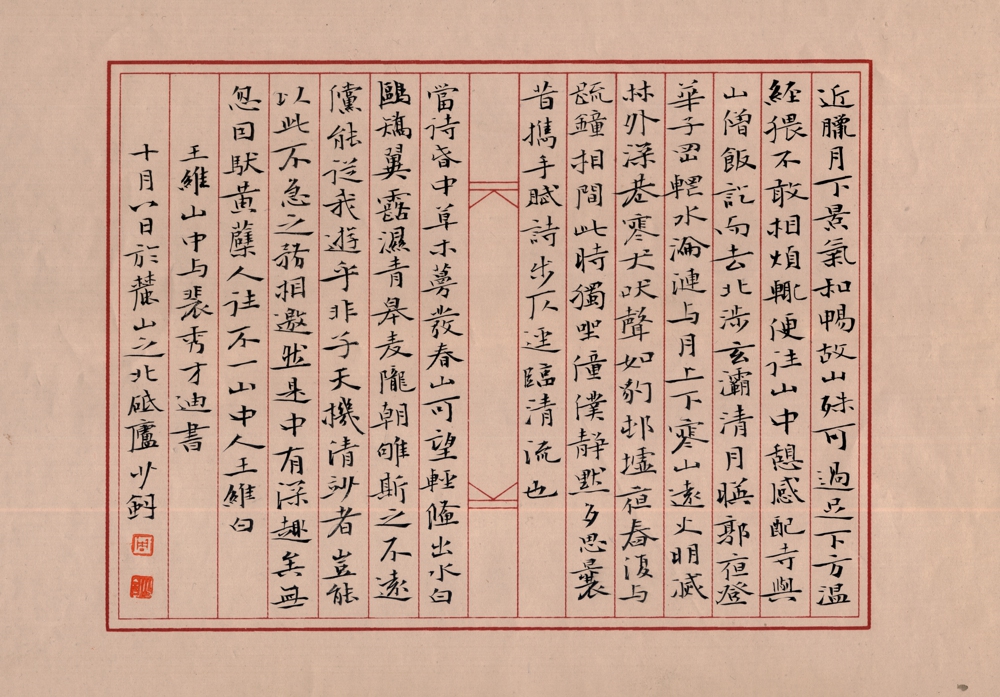 近臘月下景氣和暢故山殊可過足下方溫
經猥不敢相煩輒便往山中憩感配寺與
山僧飯訖而去北涉玄灞清月暎郭夜登
華子岡輞水淪漣与月上下寒山遠火明滅
林外深巷寒犬吠聲如豹邨墟夜舂復与
疏鐘相間此時獨坐僮僕靜默多思曩
昔攜手賦詩步仄逕臨清流也
當待春中草木蔓發春山可望輕鯈出水白
鷗矯翼露濕青皋麦隴朝雊斯之不遠
儻能從我遊乎非子天機清妙者豈能
以此不急之務相邀然是中有深趣矣無
忽因馱黃蘗人往不一山中人王維白
王維山中与裴秀才迪書
十月八日於麓山之北砥廬少